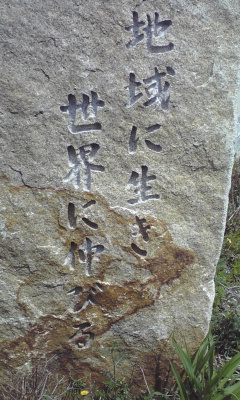 地域に生き
世界に伸びる